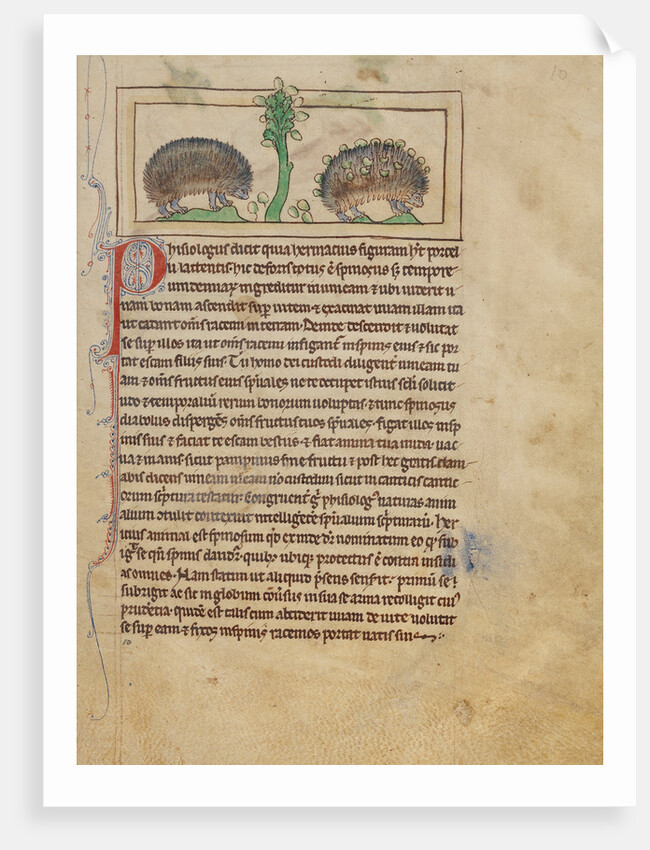 10
Phisiologus dicit quia herinacius figuram ħt porcel
li lactentis· hic deforis totus ē spinosus sꝫ tempore
uindemiarꝫ ingreditur in uineam & ubi uiderit u
uam bonam ascendit suꝑ uitem· & exacinat uuam illam ita
ut cadant om̄s racemi in terram· Deinde descendit & uolutat
se suꝑ illos ita ut om̄s racemi infigant᷑ in spinis eius & sic por
tat escam filiis suis· Tu homo dei custodi diligent᷑ uineam tu
am & om̄s fructus eius sp̄uales ne te occupet istius scl̄i solicit
udo & temporaliū rerum bonorum uoluptas· & tunc spinosus
diabolus dispergēs om̄s fructus tuos sp̄uales· figat illos in sp
inis suis & faciat te escam bestiis· & fiat anima tua nuda· uac
ua & inanis sicut pampinus sine fructu & post hec gratis clam
abis dicens uineam meam nō custodiui sicut in canticis cantic
orum sc̄ptura testatur· Congruent᷑ gͦ phisiologꝰ naturas anim
alium ↄtulit & contexuit intelligētie sp̄ualium sc̄pturarū· Her
itius animal est spinosum qd̄ ex inde dr̄ nominatum eo qꝫ sub
igͣt se qn̄ spinis daudit᷑· quibꝫ ubiqꝫ protectus ē contra insidi
as omnes· Nam statim ut aliquid p̄sens senserit· primū se ·
subrigit ac sic in globum cōuersus in sua se arma recolligit cuiꝰ
prudentia· quidē est talis cum absciderit uuam de uite uolutat
se suꝑ eam & fixos in spinis racemos portat natis suis
10